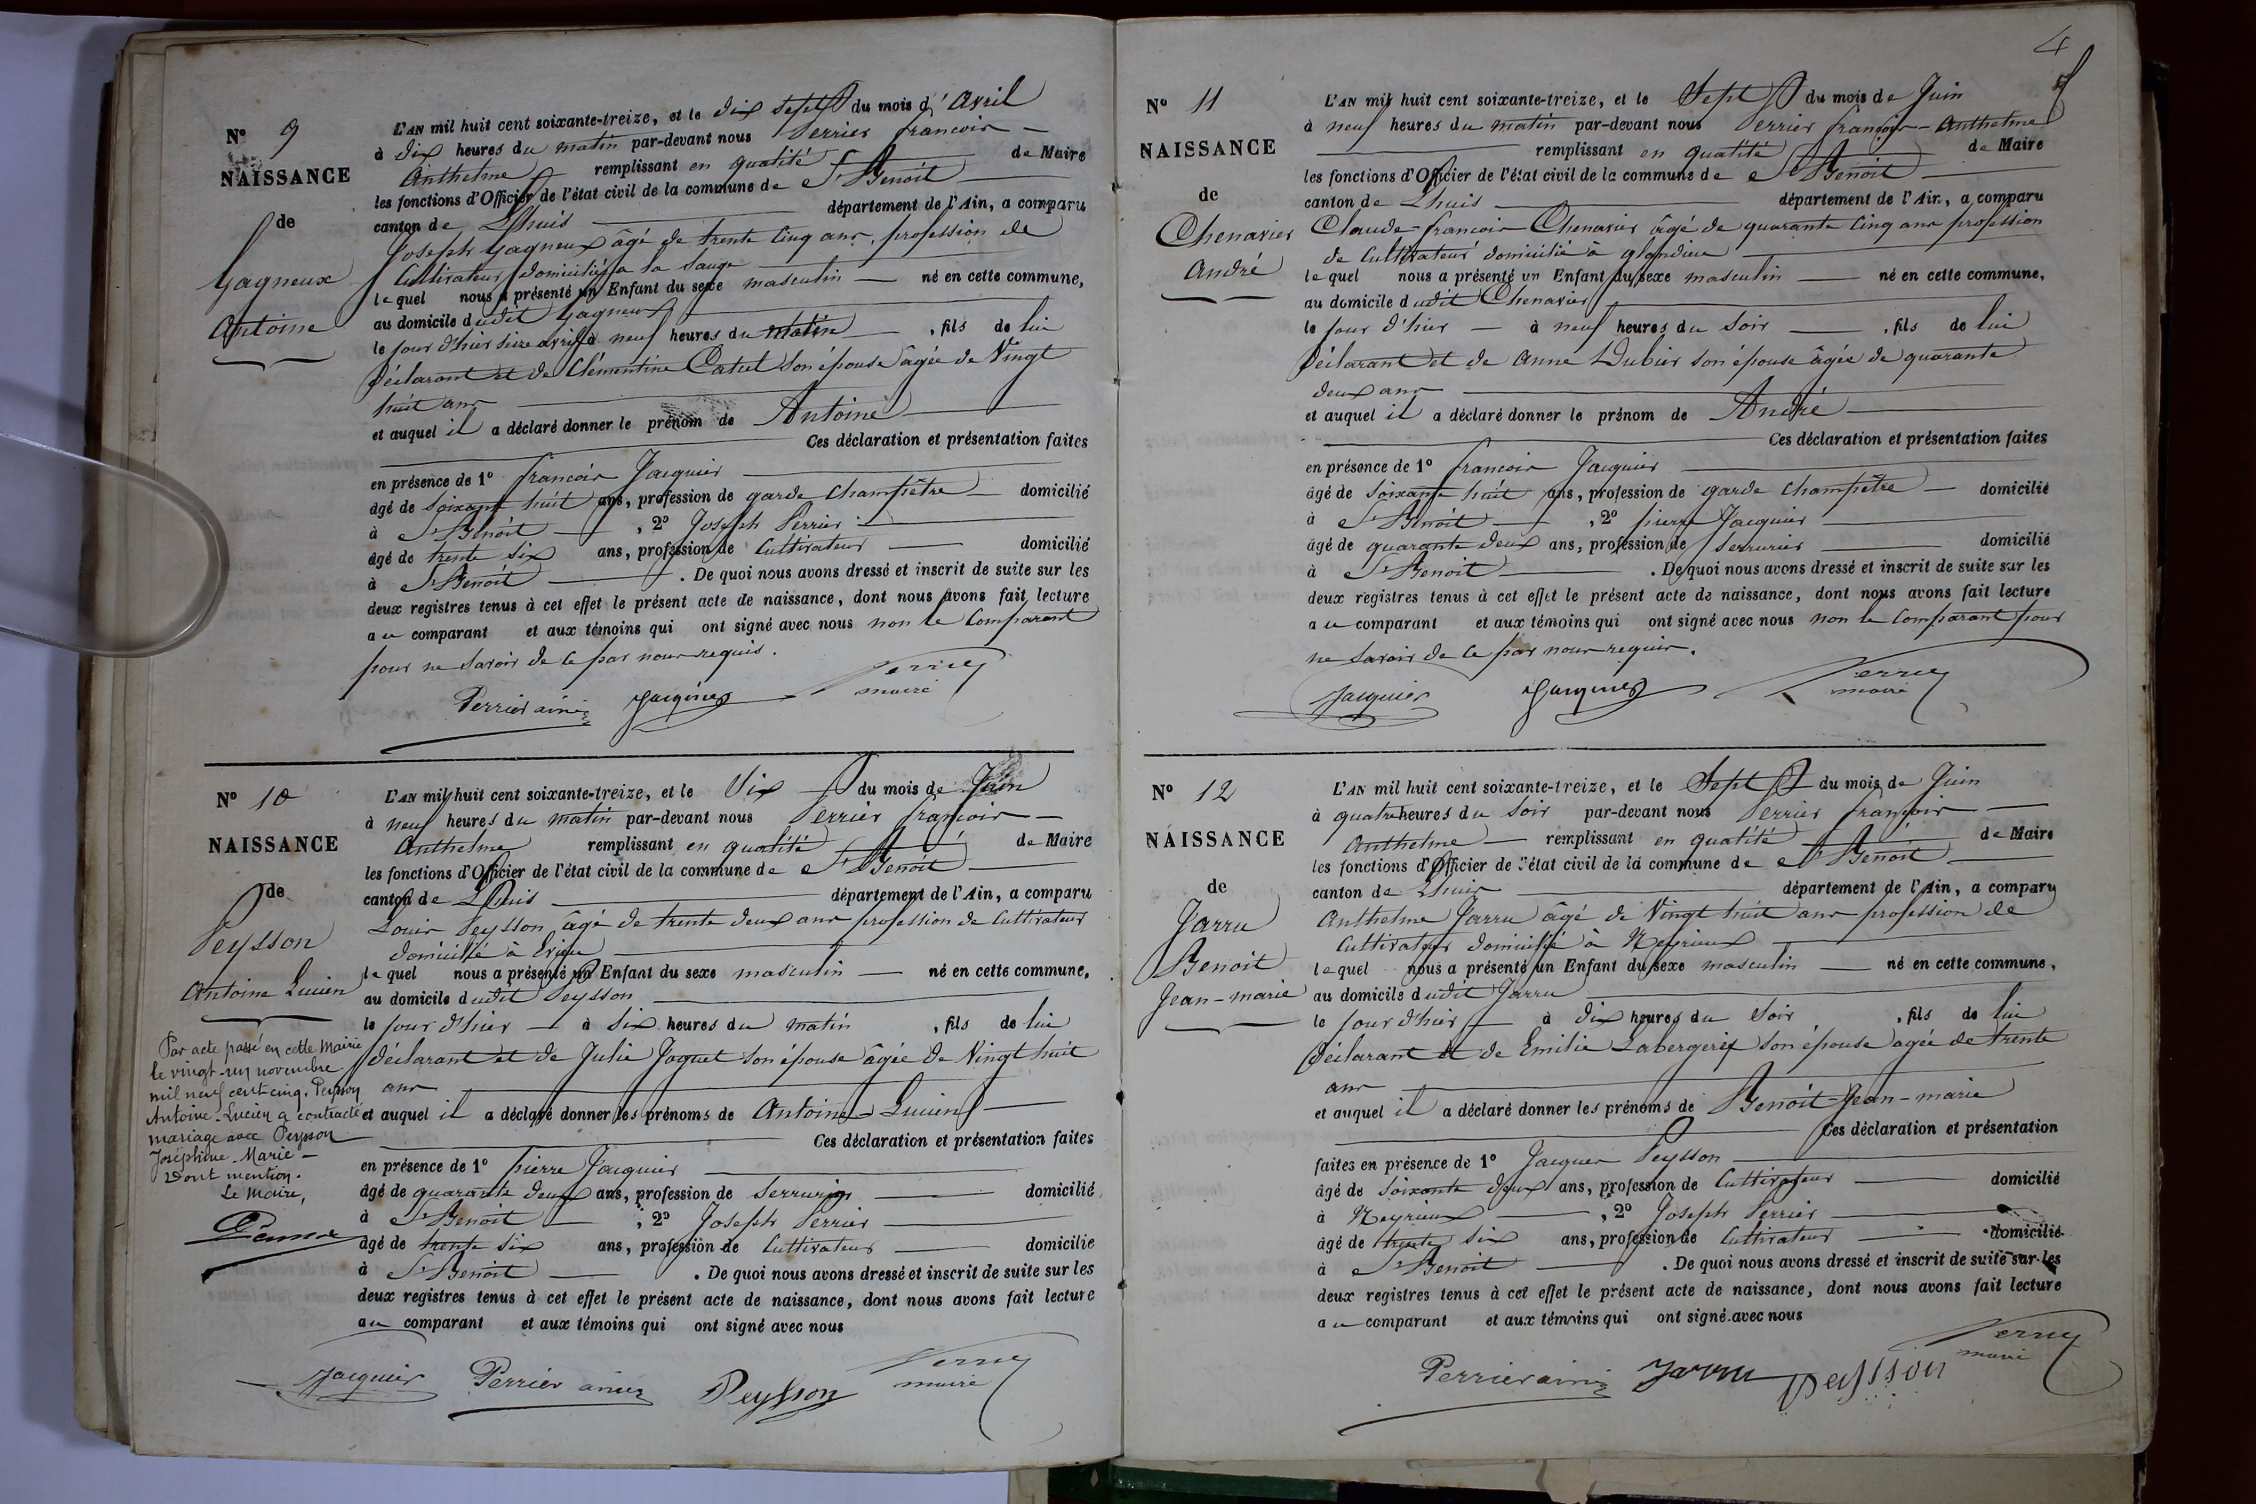 N° 9
NAISSANCE
de
Gagneux
Antoine
L'AN mil huit cent soixante-treize, et le dix sept du mois d'avril
à dix heures du matin par-devant nous Perrier françois
Anthelme remplissant en qualité de Maire
les fonctions d'Officier de l'état civil de la commune de St Benoit
canton de Lhuis département de l'Ain, a comparu
Joseph Gagneux âgé de trente cinq ans, profession de
Cultivateur domicilié à la Sauge
lequel nous a présenté un Enfant du sexe masculin né en cette commune,
au domicile dudit Gagneux
le jour d'hier seize avril à neuf heures du matin, fils de lui
Déclarant et de Clémentine Catul son épouse âgée de Vingt
huit ans
et auquel il a déclaré donner le prénom de Antoine
Ces déclaration et présentation faites
en présence de 1° françois Jacquier
âgé de soixante huit ans, profession de garde champêtre domicilié
à St Benoit, 2° Joseph Perrier
âgé de trente six ans, profession de Cultivateur domicilié
à St Benoit. De quoi nous avons dressé et inscrit de suite sur les
deux registres tenus à cet effet le présent acte de naissance, dont nous avons fait lecture
au comparant et aux témoins qui ont signé avec nous non le Comparant
pour ne savoir de ce par nous requis.
Perrier ainé Jacquier Perrier
maire
N° 10
NAISSANCE
de
Peysson
Antoine Lucien
Par acte passé en cette Mairie
le vingt-un novembre
mil neuf cent cinq, Peysson
Antoine-Lucien a contracté
mariage avec Peysson
Joséphine-Marie-
Dont mention.
Le Maire,
L'AN mil huit cent soixante-treize, et le Six du mois de Juin
à neuf heures du matin par-devant nous Perrier françois
Anthelme remplissant en qualité de Maire
les fonctions d'Officier de l'état civil de la commune de St Benoit
canton de Lhuis département de l'Ain, a comparu
Louis Peysson âgé de trente deux ans profession de Cultivateur
domicilié à
lequel nous a présenté un Enfant du sexe masculin né en cette commune,
au domicile dudit Peysson
le jour d'hier à six heures du matin, fils de lui
Déclarant et de Julie Joguet son épouse âgée de Vingt huit
ans
et auquel il a déclaré donner les prénoms de Antoine-Lucien
Ces déclaration et présentation faites
en présence de 1° pierre Jacquier
âgé de quarante deux ans, profession de serrurier domicilié
à St Benoit, 2° Joseph Perrier
âgé de trente six ans, profession de Cultivateur domicilié
à St Benoit. De quoi nous avons dressé et inscrit de suite sur les
deux registres tenus à cet effet le présent acte de naissance, dont nous avons fait lecture
au comparant et aux témoins qui ont signé avec nous
Jacquier Perrier ainé Peysson Perrier
maire
4
N° 11
NAISSANCE
de
Chenavier
André
L'AN mil huit cent soixante-treize, et le Sept du mois de Juin
à neuf heures du matin par-devant nous Perrier françois-Anthelme
remplissant en qualité de Maire
les fonctions d'Officier de l'état civil de la commune de St Benoit
canton de Lhuis département de l'Ain, a comparu
Claude-françois Chenavier âgé de quarante cinq ans profession
de Cultivateur domicilié à glandieu
lequel nous a présenté un Enfant du sexe masculin né en cette commune,
au domicile dudit Chenavier
le jour d'hier à neuf heures du soir, fils de lui
Déclarant et de Anne Dubier son épouse âgée de quarante
deux ans
et auquel il a déclaré donner le prénom de André
Ces déclaration et présentation faites
en présence de 1° françois Jacquier
âgé de soixante huit ans, profession de garde champêtre domicilié
à St Benoit, 2° pierre Jacquier
âgé de quarante deux ans, profession de serrurier domicilié
à St Benoit. De quoi nous avons dressé et inscrit de suite sur les
deux registres tenus à cet effet le présent acte de naissance, dont nous avons fait lecture
au comparant et aux témoins qui ont signé avec nous non le Comparant pour
ne savoir de ce par nous requis.
Jacquier Jacquier Perrier
maire
N° 12
NAISSANCE
de
Jarru
Benoit
Jean-marie
L'AN mil huit cent soixante-treize, et le Sept du mois de Juin
à quatre heures du soir par-devant nous Perrier françois
Anthelme remplissant en qualité de Maire
les fonctions d'Officier de l'état civil de la commune de St Benoit
canton de Lhuis département de l'Ain, a comparu
Anthelme Jarru âgé de Vingt huit ans profession de
Cultivateur domicilié à Neyrieux
lequel nous a présenté un Enfant du sexe masculin né en cette commune,
au domicile dudit Jarru
le jour d'hier à dix heures du soir, fils de lui
Déclarant et de Emilie Labergerie son épouse âgée de trente
ans
et auquel il a déclaré donner les prénoms de Benoit Jean-marie
Ces déclaration et présentation
faites en présence de 1° Jacques Peysson
âgé de soixante deux ans, profession de Cultivateur domicilié
à Neyrieux, 2° Joseph Perrier
âgé de trente six ans, profession de Cultivateur domicilié
à St Benoit. De quoi nous avons dressé et inscrit de suite sur les
deux registres tenus à cet effet le présent acte de naissance, dont nous avons fait lecture
au comparant et aux témoins qui ont signé avec nous
Perrier ainé Jarru peysson Perrier
maire